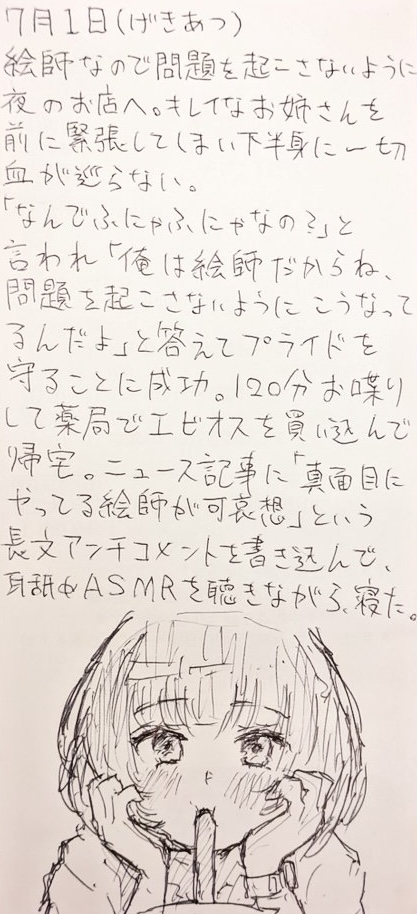 7月1日(げきあつ)
絵師なので問題を起こさないように
夜のお店へ。キレイなお姉さんを
前に緊張してしまい下半身に一切
血が巡らない。
「なんでふにゃふにゃなの?」と
言われ「俺は絵師だからね、
問題を起こさないようにこうなって
るんだよ」と答えてプライドを
守ることに成功。120分お喋り
して薬局でエビオスを買い込んで
帰宅。ニュース記事に「真面目に
やってる絵師が可哀想」という
長文アンチコメントを書き込んで、
耳舐めASMRを聴きながら、寝た。